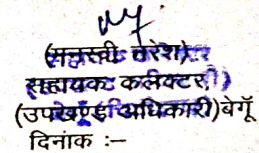 (मनस्वी नरेश)
सहायक कलेक्टर
(उपखण्ड अधिकारी) बेगूँ
दिनांक :–